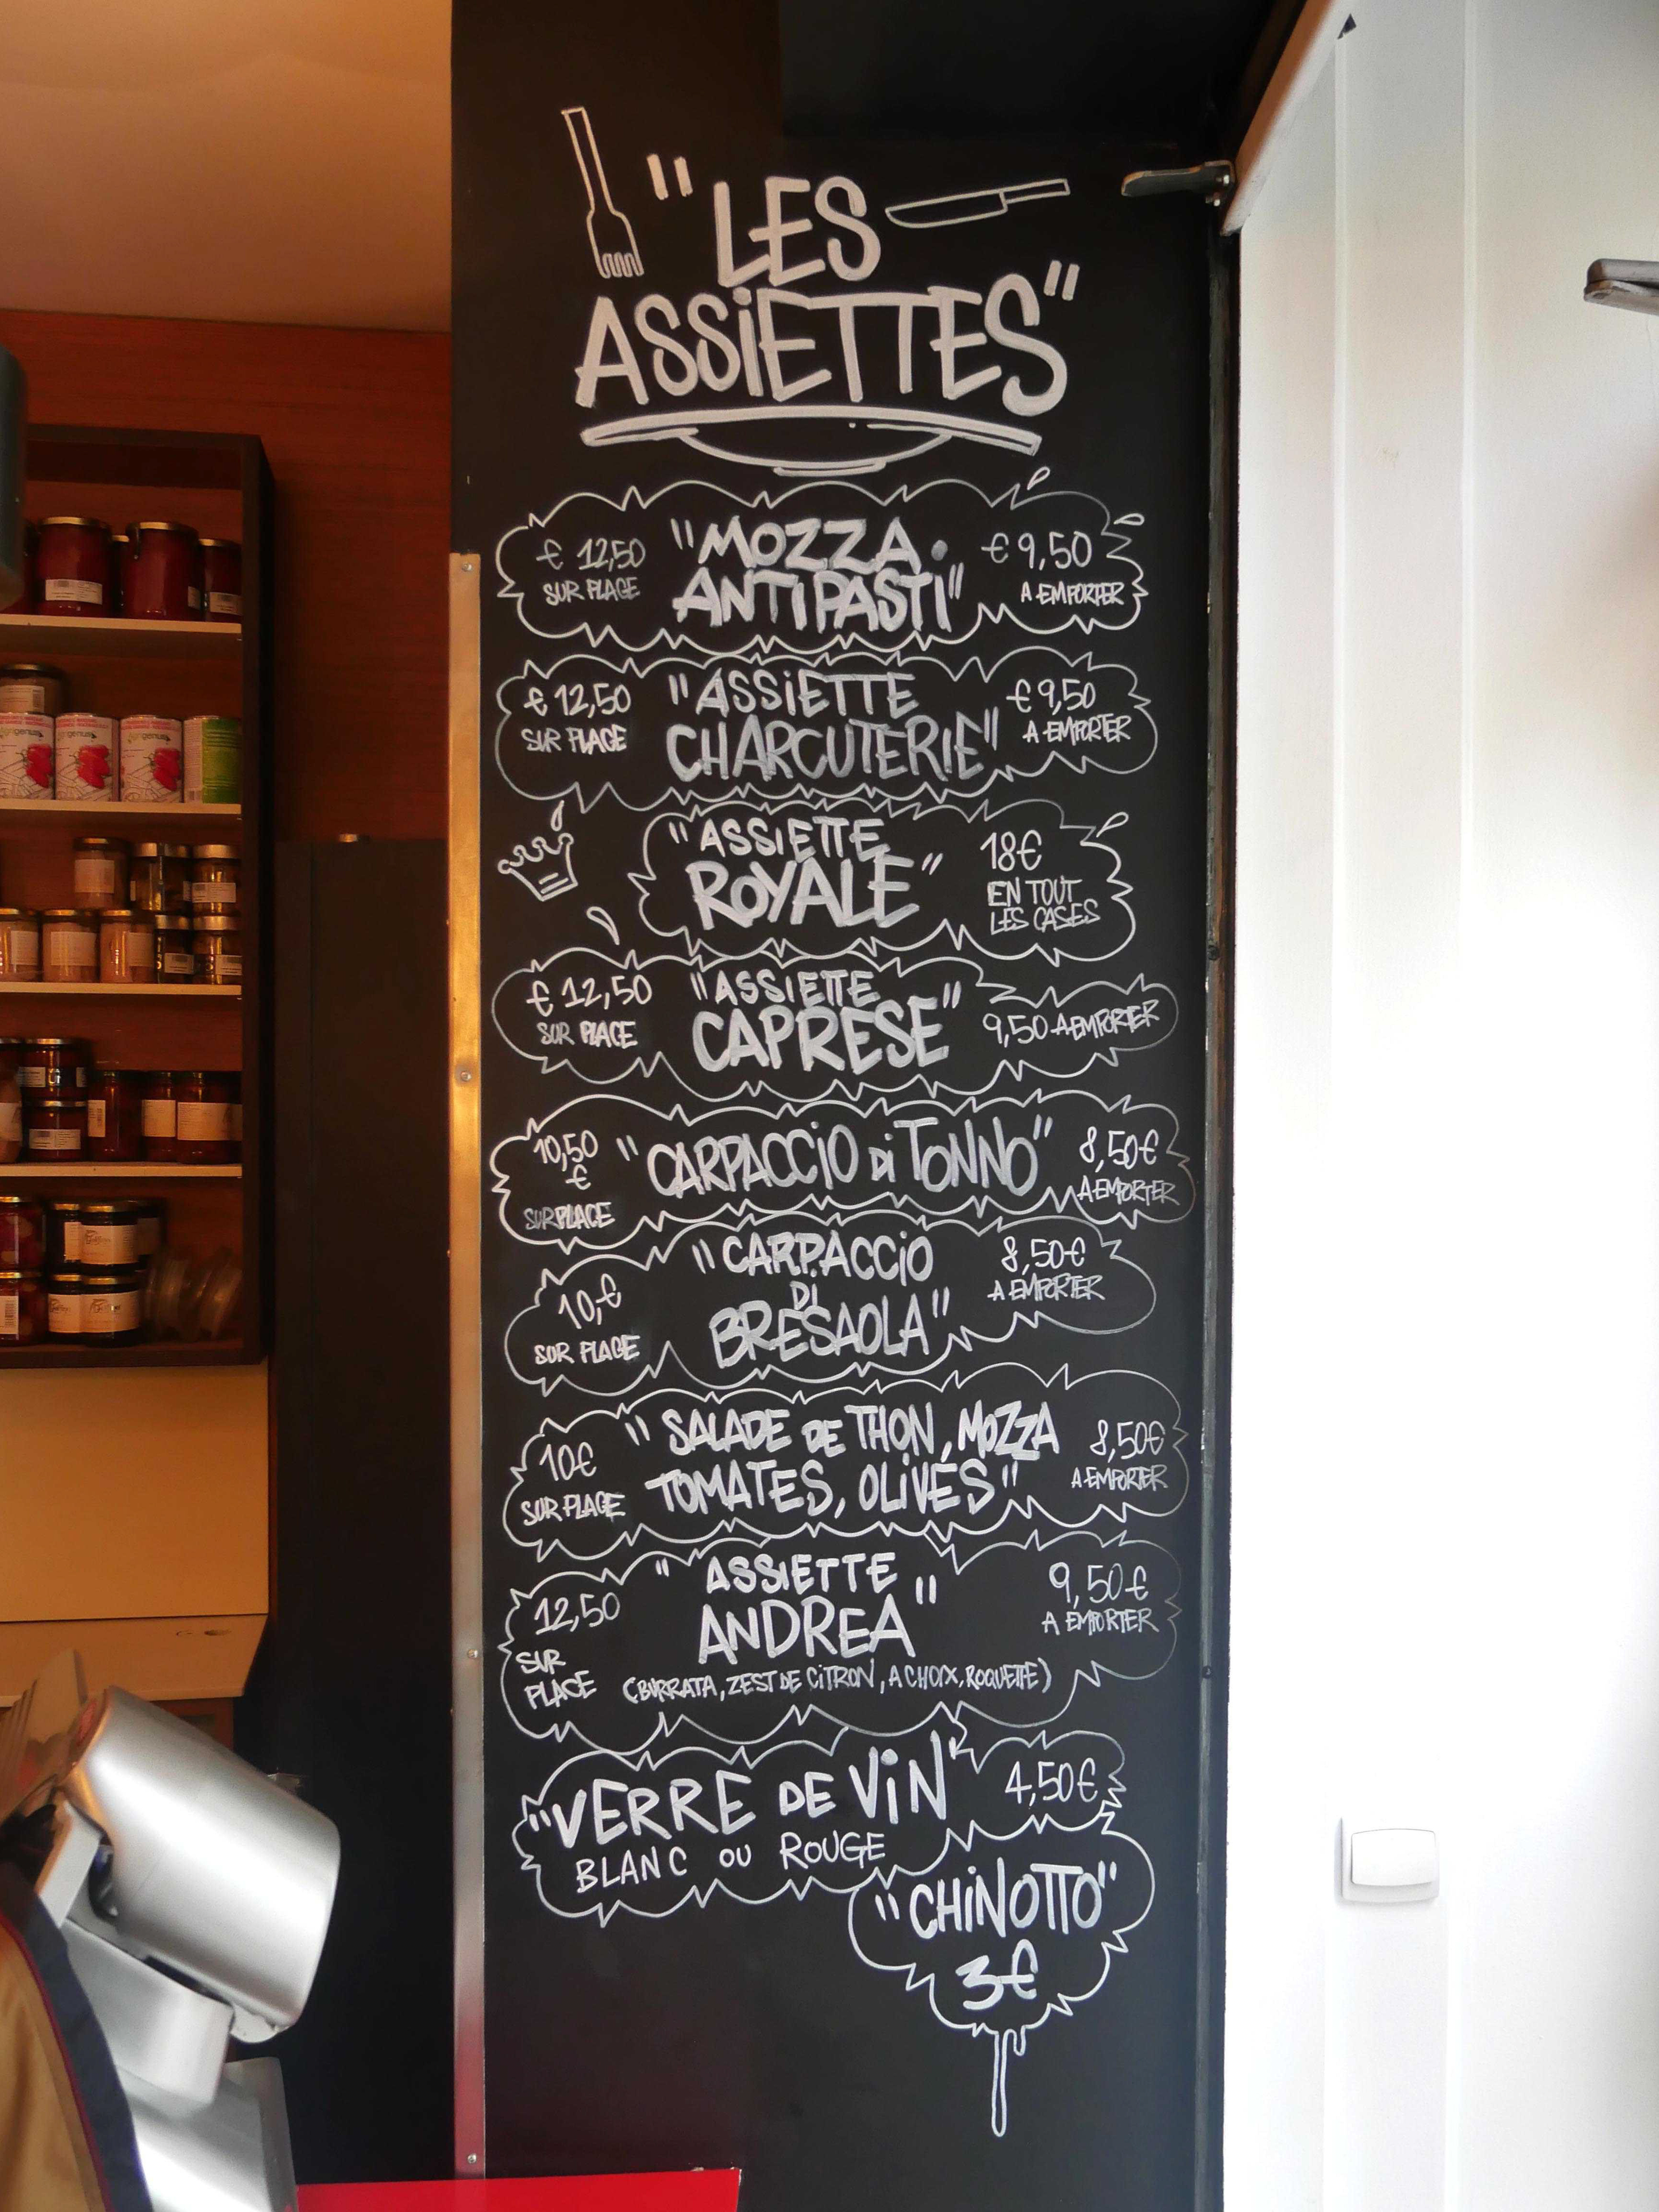 "LES
ASSiETTES"
€ 12,50
SUR PLACE
"MOZZA.
ANTIPASTI"
€ 9,50
A EMPORTER
€ 12,50
SUR PLACE
"ASSiETTE
CHARCUTERIE"
€ 9,50
A EMPORTER
"ASSIETTE
ROYALE"
18€
EN TOUT
LES CASES
€ 12,50
SUR PLACE
"ASSIETTE
CAPRESE"
9,50 A EMPORTER
10,50
€
SUR PLACE
"CARPACCiO Di TONNO"
8,50€
A EMPORTER
"CARPACCiO
DI
BRESAOLA"
10,€
SUR PLACE
8,50€
A EMPORTER
10€
SUR PLACE
"SALADE DE THON, MOZZA
TOMATES, OLIVES"
8,50€
A EMPORTER
12,50
SUR
PLACE
"ASSIETTE
ANDREA"
(BURRATA, ZEST DE CiTRON, A CHOIX, ROQUETTE)
9,50€
A EMPORTER
"VERRE DE ViN"
BLANC OU ROUGE
4,50€
"CHiNOTTO"
3€